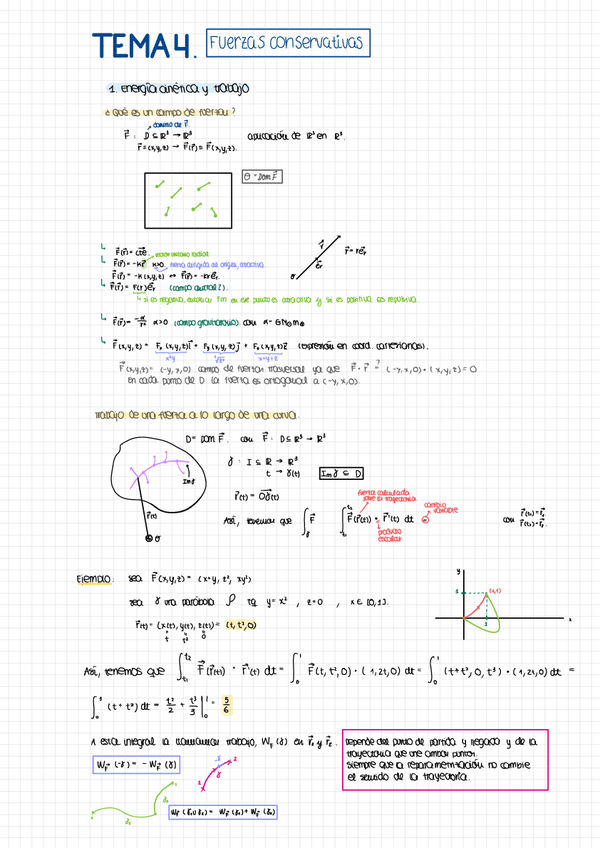 TEMA 4. Fuerzas conservativas
1. Energía cinética y trabajo
¿Qué es un campo de fuerzas?
dominio de F.
F⃗ : D ⊆ ℝ³ → ℝ³ aplicación de ℝ³ en ℝ³.
r⃗ = (x,y,z) → F⃗(r⃗) = F⃗(x,y,z).
θ = Dom F⃗
↳ F⃗(r⃗) = cte
↳ F⃗(r⃗) = -kr⃗ k>0 fuerza dirigida al origen, atractiva
F⃗(r⃗) = -k(x,y,z) ↔ F⃗(r⃗) = -kre⃗r.
↳ F⃗(r⃗) = F(r)e⃗r (campo central).
r⃗
e⃗r
r⃗ = re⃗r
σ
↳ si es negativa, entonces F en ese punto es atractiva y si es positiva es repulsiva.
↳ F⃗(r⃗) = -α/r² α>0 (campo gravitatorio). con α = G M m
↳ F⃗(x,y,z) = Fx(x,y,z)i⃗ + Fy(x,y,z)j⃗ + Fz(x,y,z)k⃗ (expresión en coord. cartesianas).
x²y x+y+z
F⃗(x,y,z) = (-y,x,0) campo de fuerzas trasversal ya que F⃗·r⃗ ?= (-y,x,0)·(x,y,z) = 0
En cada punto de D la fuerza es ortogonal a (-y,x,0).
Trabajo de una fuerza a lo largo de una curva.
D = Dom F⃗. con F⃗ : D ⊆ ℝ³ → ℝ³
γ : I ⊆ ℝ → ℝ³
t → γ(t) Im γ ⊆ D
Im γ
r⃗(t) = Oγ(t)
r⃗(t)
σ
fuerza calculada sobre la trayectoria
cambio variable
Así, tenemos que ∫γ F⃗ ∫t₁^t₂ F⃗(r⃗(t)) · r⃗'(t) dt con r⃗(t₁) = r⃗₁
r⃗(t₂) = r⃗₂
producto escalar
Ejemplo: sea F⃗(x,y,z) = (x+y, z², xy²)
sea γ una parábola P tq y = x², z = 0, x ∈ [0,1].
r⃗(t) = (x(t), y(t), z(t)) = (t, t², 0)
t t² 0
y
1
(1,1)
1
x
Así, tenemos que ∫t₁^t₂ F⃗(r⃗(t)) · r⃗'(t) dt = ∫₀¹ F⃗(t,t²,0) · (1,2t,0) dt = ∫₀¹ (t+t², 0, t⁵) · (1,2t,0) dt =
∫₀¹ (t+t²) dt = t²/2 + t³/3 |₀¹ = 5/6
A esta integral la llamamos trabajo, W_F(γ) en r⃗₁ y r⃗₂.
Depende del punto de partida y llegada y de la
trayectoria que une ambos puntos.
Siempre que la reparametrización no cambie
el sentido de la trayectoria.
W_F(-γ) = -W_F(γ)
W_F(γ₁∪γ₂) = W_F(γ₁) + W_F(γ₂)